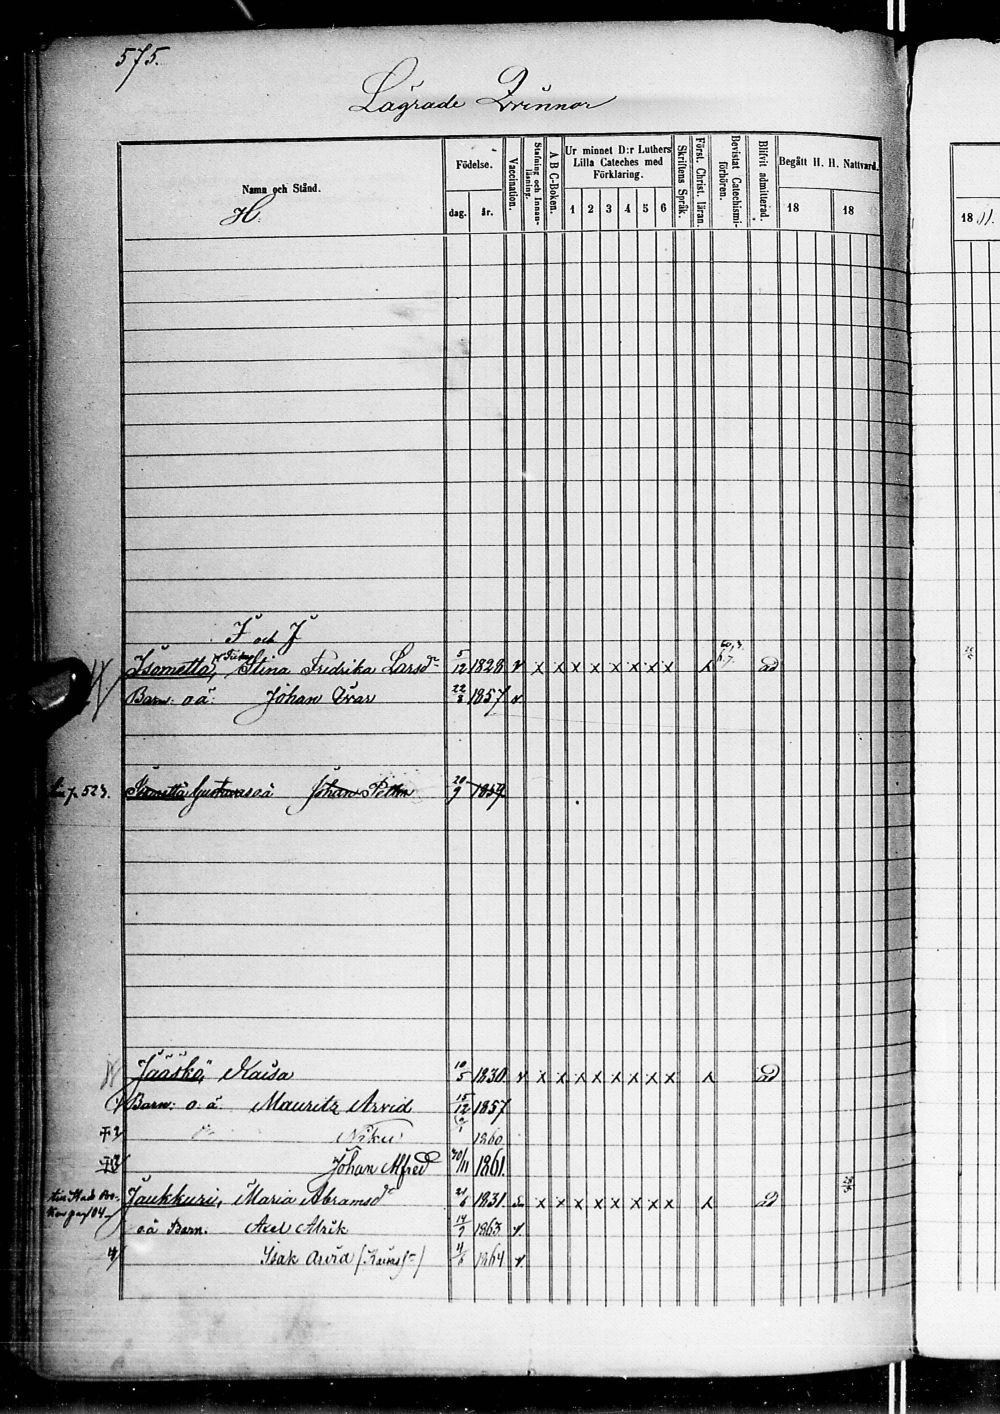 575.
Lägrade Qvinnor
Namn och Stånd.
H.
Födelse.
dag. år.
Vaccination.
Stafning och Innanläsning.
A B C-Boken.
Ur minnet D:r Luthers Lilla Cateches med Förklaring.
1 2 3 4 5 6
Skriftens Språk.
Först. Christ. läran.
Bevistat Catechismiförhören.
Blifvit admitterad.
Begått H. H. Nattvard.
18 18
18 81.
I och J
Isometta, Stina Fredrika Larsdr 5/12 1828 v x x x x x x x x x ad
Barn: o ä: Johan Ivar 22/8 1857 v.
p. 523. Isometta Gustavas o ä Johan Petter 20/9 1859
Jääskö, Kaisa 10/5 1830. v x x x x x x x x x ad
Barn: o. ä Mauritz Arvid 15/12 1857
1860
Johan Alfred 30/11 1861
Jaukkuri, Maria Abramsdr 21/6 1831. x x x x x x x x x ad
o ä Barn. Axel Alrik 14/9 1863 v.
Isak Arvid 1864 v